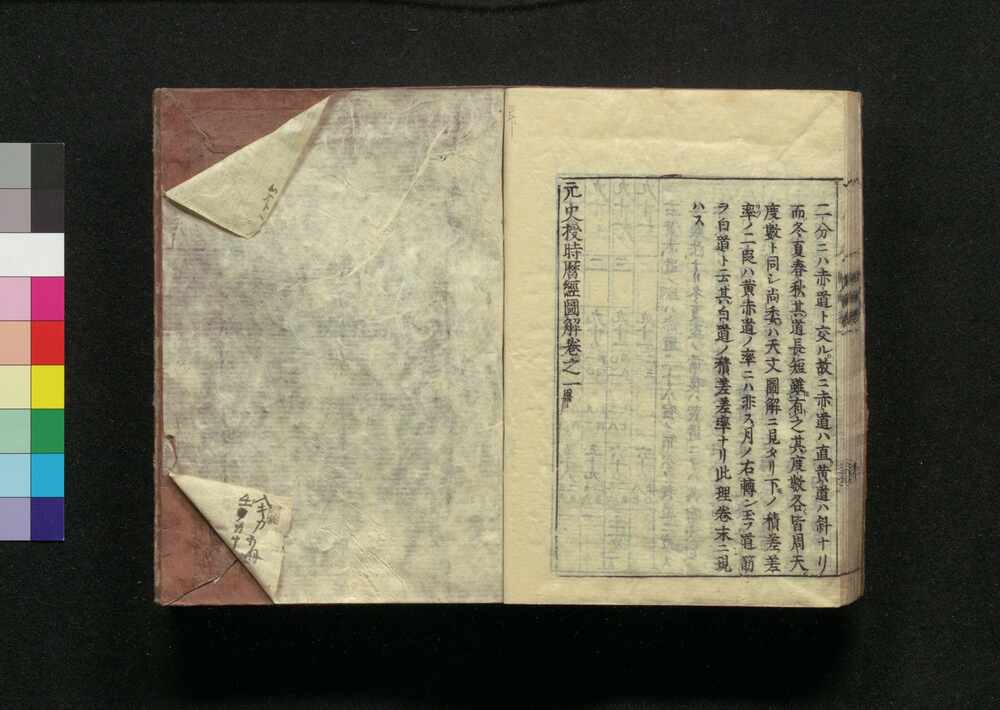 二分ニハ赤道ト交ル故ニ赤道ハ直黄道ハ斜ナリ
而冬夏春秋其道長短雖有之其度數各皆周天
度數ト同シ尚委ハ天文圖解ニ見タリ下ノ積差差
率ノ二段ハ黄赤道ノ率ニハ非ス月ノ右轉シ至ラ道筋
ヲ白道ト云其白道ノ積差差率ナリ此理卷末ニ現
ハス
元史授時曆經圖解卷之一終